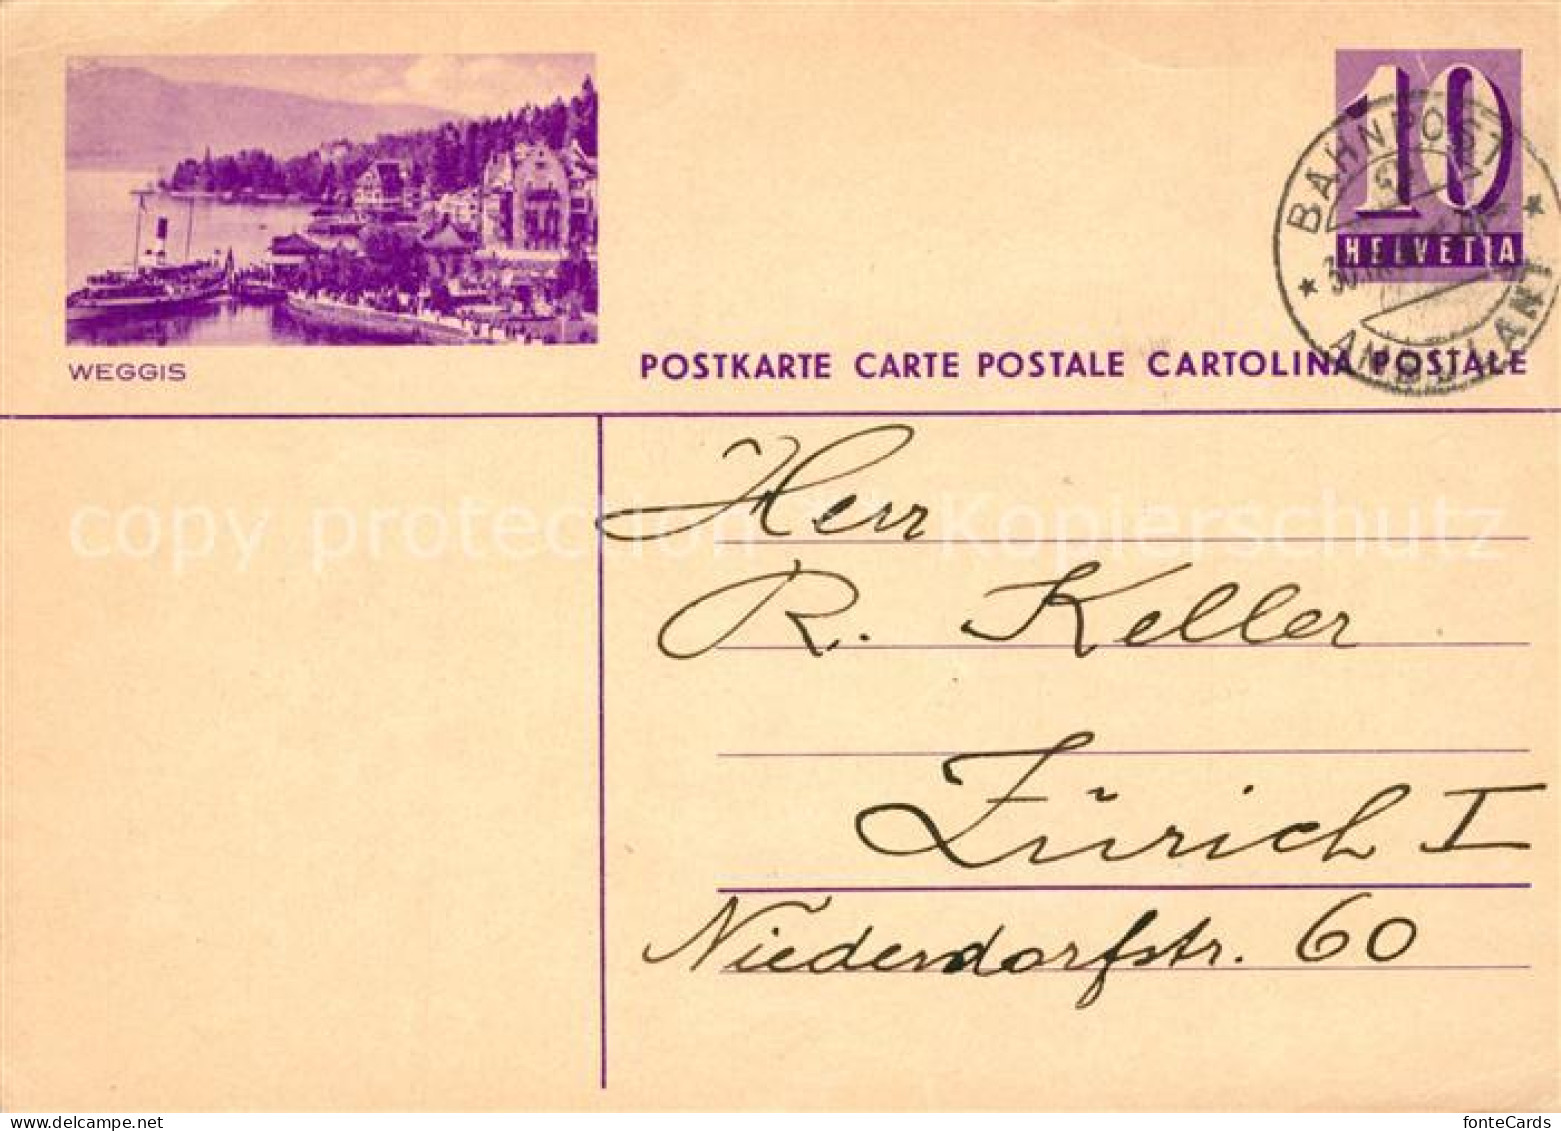 10
HELVETIA
BAHNPOST
AMBULANT
WEGGIS
POSTKARTE CARTE POSTALE CARTOLINA POSTALE
copy protection Kopierschutz
Herr
R. Keller
Zürich I
Niederdorfstr. 60
fonteCards